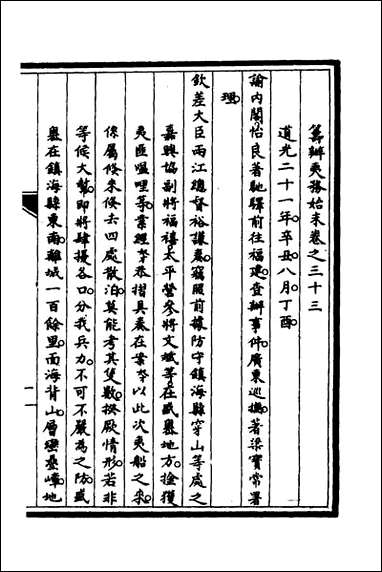 籌辦夷務始末卷之三十三
道光二十一年辛丑八月丁酉
諭內閣怡良著馳驛前往福建查辦事件廣東巡撫著梁寶常署
理
欽差大臣兩江總督裕謙奏竊照前據防守鎮海縣穿山等處之
嘉興協副將福禧太平營參將文斌等在盛嶴地方捡獲
夷匪嗢哩等業經奴才恭摺具奏在案奴才以此次夷船之來
倐屬倐來倐去四處散泊莫能考其隻數揆厥情形若非
等候大幫即將肆擾各口分我兵力不可不嚴為之防盛
嶴在鎮海縣東南離城一百餘里面海背山層巒疊嶂地